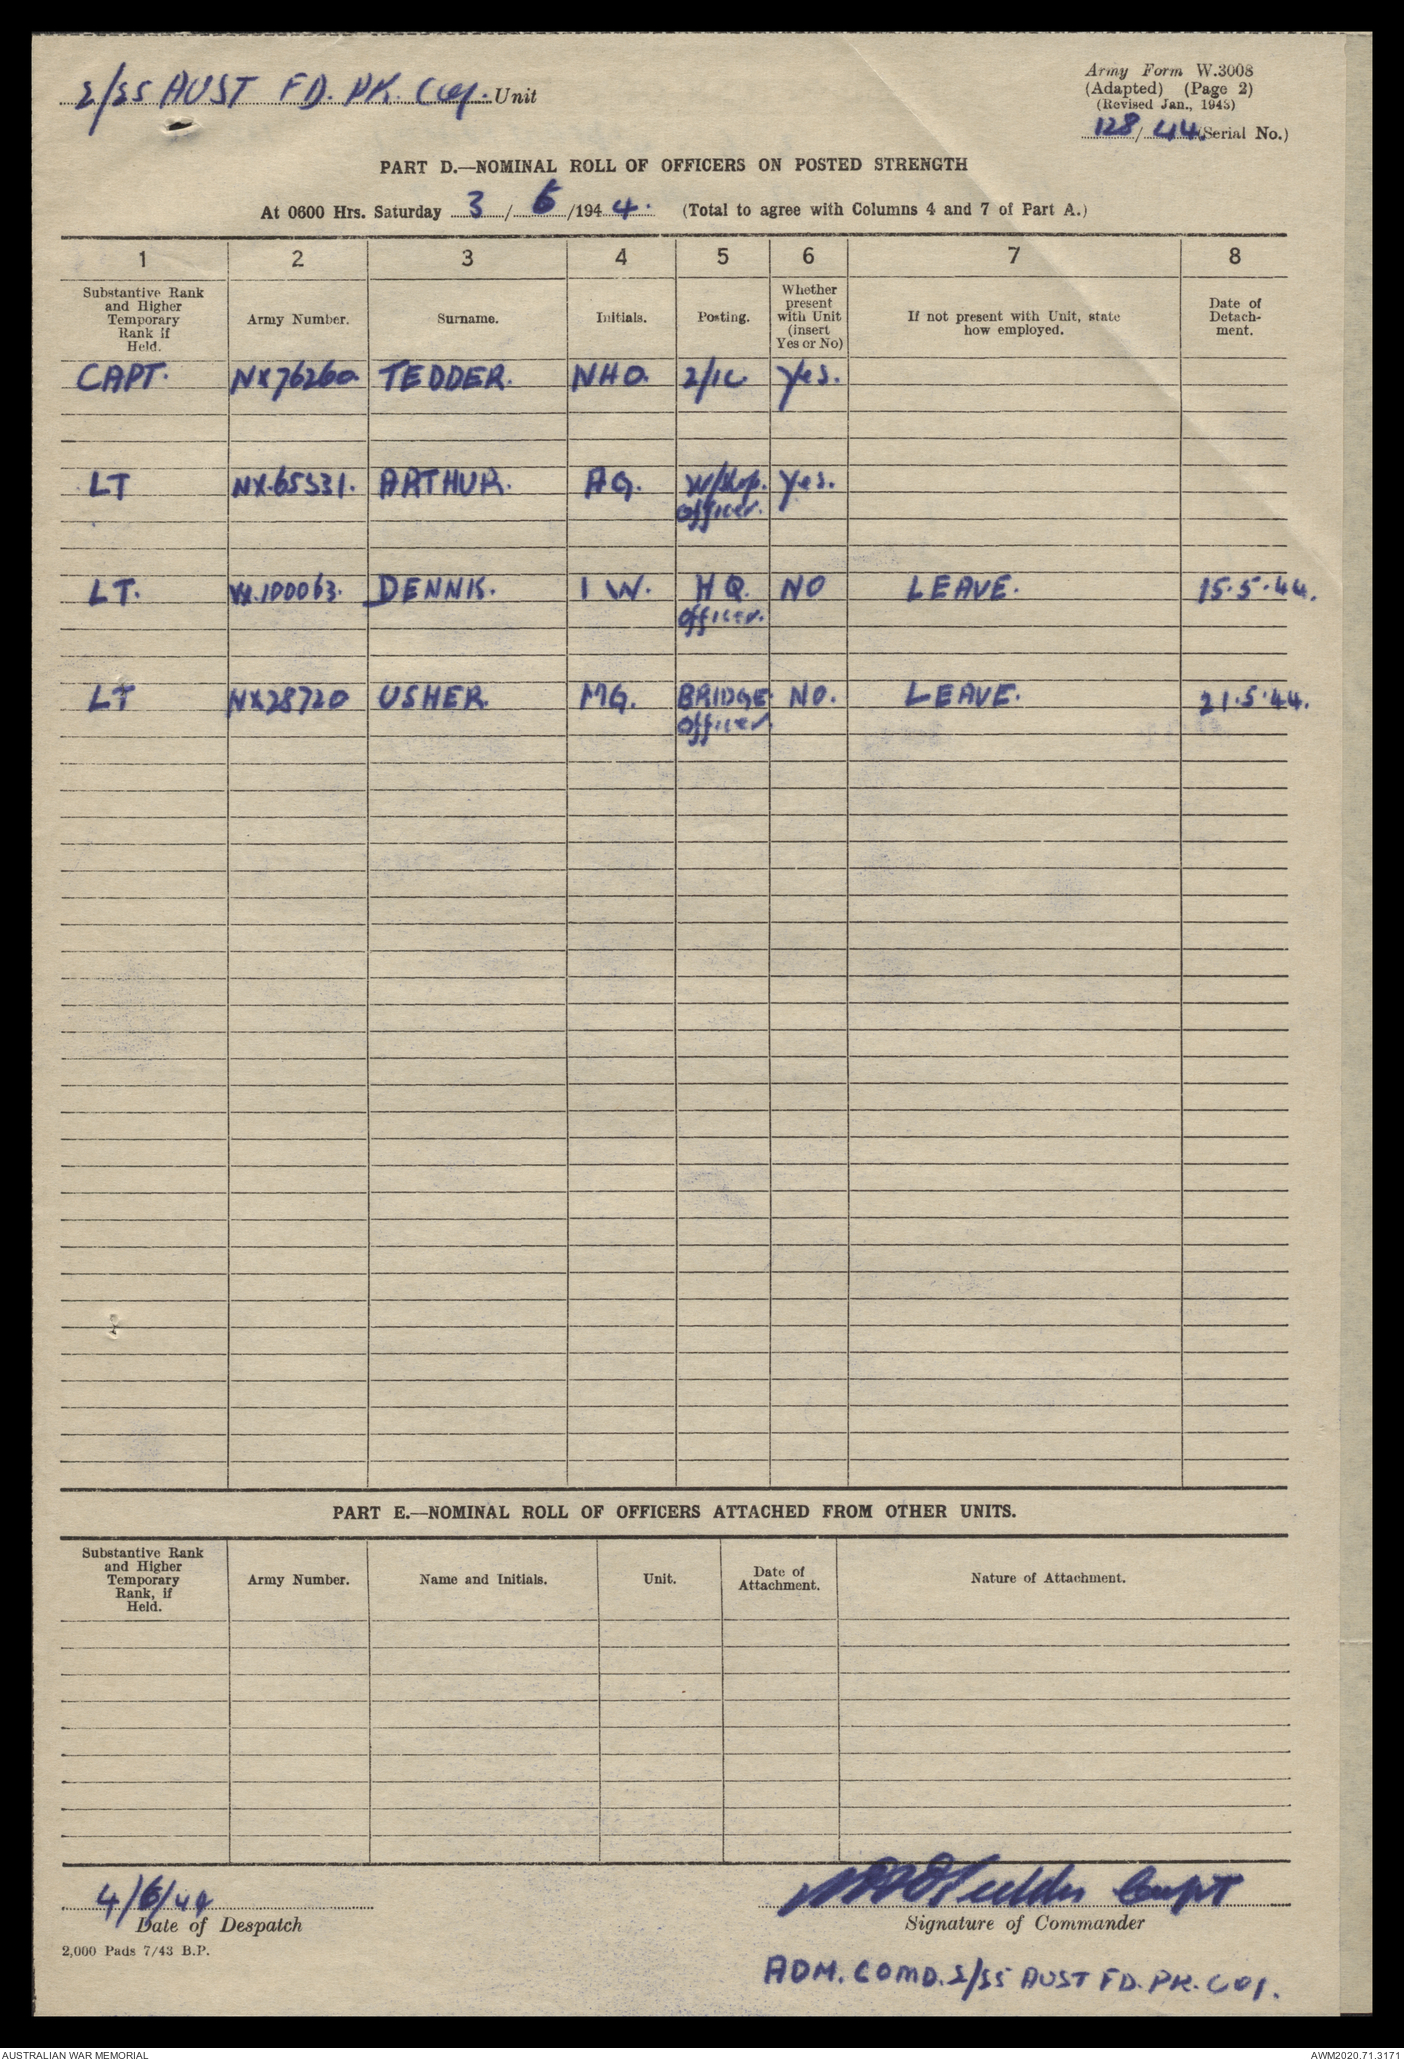 2/25 AUST FD. PK. Coy. Unit
Army Form W.3008
(Adapted) (Page 2)
(Revised Jan., 1943)
128/44. (Serial No.)
PART D.—NOMINAL ROLL OF OFFICERS ON POSTED STRENGTH
At 0600 Hrs. Saturday 3/6/1944. (Total to agree with Columns 4 and 7 of Part A.)
1 2 3 4 5 6 7 8
Substantive Rank and Higher Temporary Rank if Held.
Army Number.
Surname.
Initials.
Posting.
Whether present with Unit (insert Yes or No)
If not present with Unit, state how employed.
Date of Detach-ment.
CAPT. NX76260. TEDDER. NHO. 2/IC Yes.
LT NX.65331. ARTHUR. AG. W/Shop. Yes.
Officer.
LT. VX.100063. DENNIS. I W. HQ. NO LEAVE. 15.5.44.
Officer.
LT NX28720 USHER. MG. BRIDGE NO. LEAVE. 21.5.44.
Officer.
PART E.—NOMINAL ROLL OF OFFICERS ATTACHED FROM OTHER UNITS.
Substantive Rank and Higher Temporary Rank, if Held.
Army Number.
Name and Initials.
Unit.
Date of Attachment.
Nature of Attachment.
4/6/44 Tedder Capt
Date of Despatch Signature of Commander
2,000 Pads 7/43 B.P.
ADM. COMD. 2/25 AUST FD. PK. COY.
AUSTRALIAN WAR MEMORIAL AWM2020.71.3171